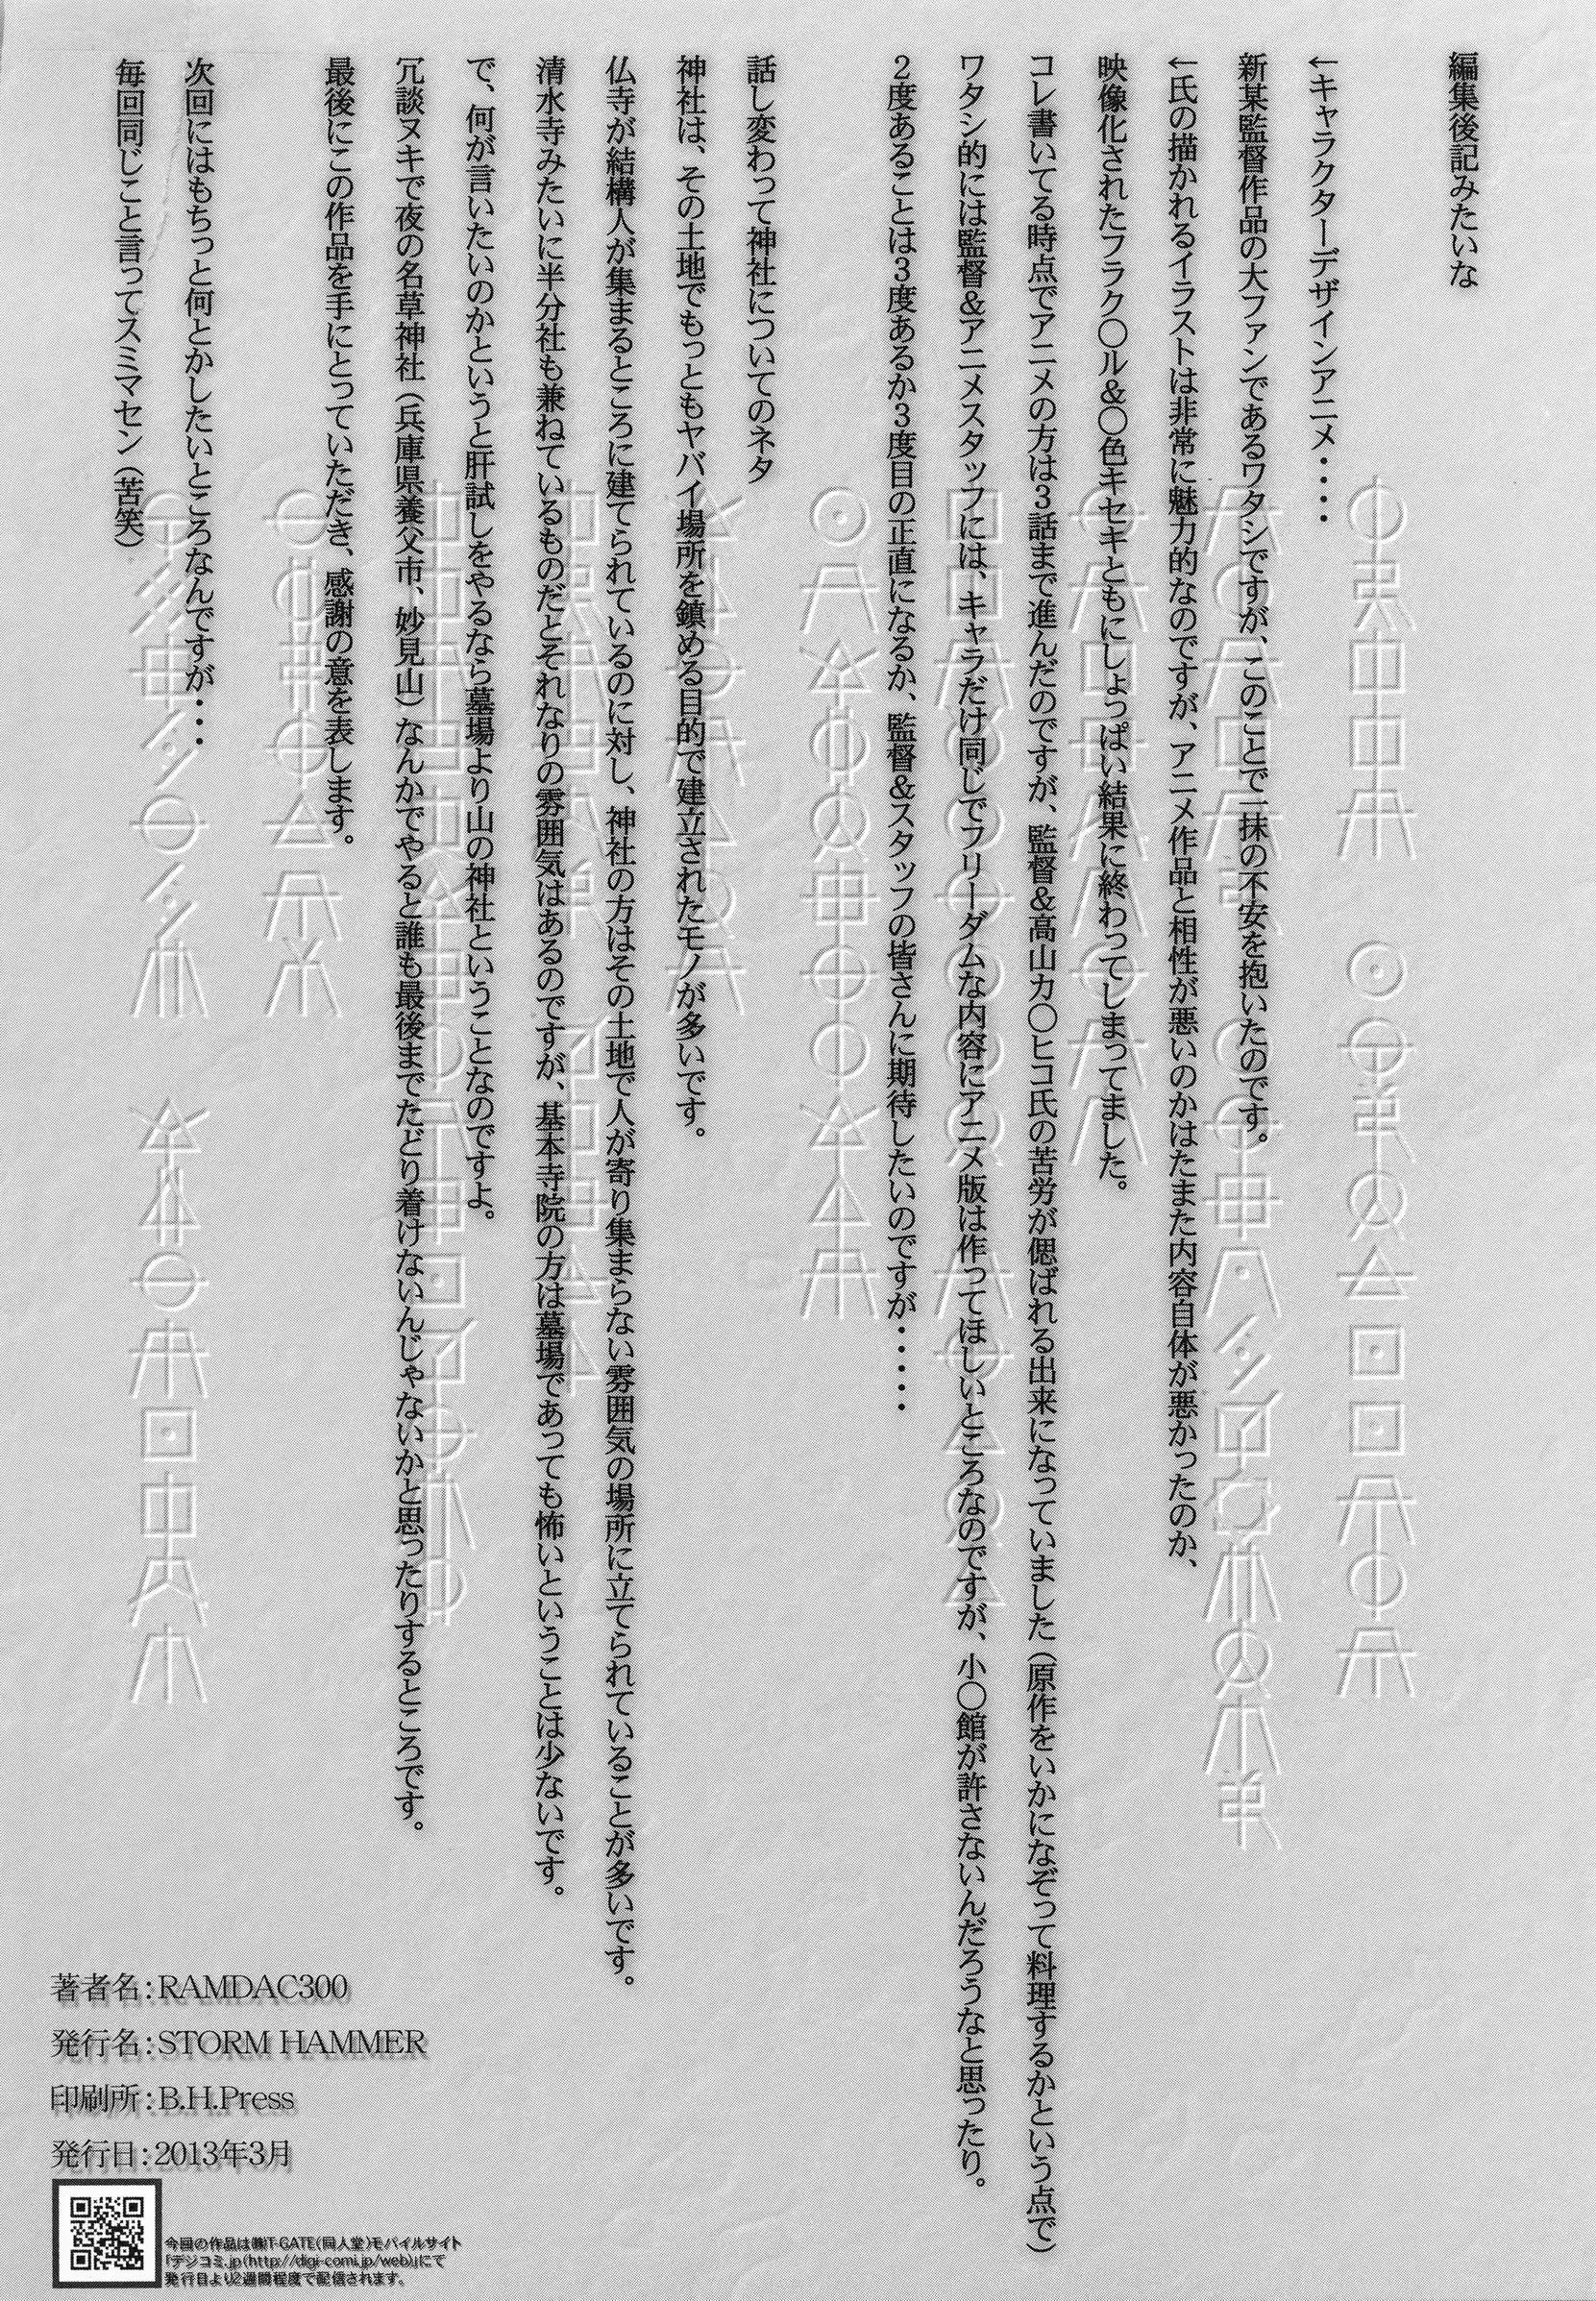 編集後記みたいな
←キャラクターデザインアニメ・・・・
新某監督作品の大ファンであるワタシですが、このことで一抹の不安を抱いたのです。
←氏の描かれるイラストは非常に魅力的なのですが、アニメ作品と相性が悪いのかはたまた内容自体が悪かったのか、
映像化されたフラク〇ル＆〇色キセキともにしょっぱい結果に終わってしまってました。
コレ書いてる時点でアニメの方は３話まで進んだのですが、監督＆高山カ〇ヒコ氏の苦労が偲ばれる出来になっていました（原作をいかになぞって料理するかという点で）
ワタシ的には監督＆アニメスタッフには、キャラだけ同じでフリーダムな内容にアニメ版は作ってほしいところなのですが、小〇館が許さないんだろうなと思ったり。
２度あることは３度あるか３度目の正直になるか、監督＆スタッフの皆さんに期待したいのですが・・・・・
話し変わって神社についてのネタ
神社は、その土地でもっともヤバイ場所を鎮める目的で建立されたモノが多いです。
仏寺が結構人が集まるところに建てられているのに対し、神社の方はその土地で人が寄り集まらない雰囲気の場所に立てられていることが多いです。
清水寺みたいに半分社も兼ねているものだとそれなりの雰囲気はあるのですが、基本寺院の方は墓場であっても怖いということは少ないです。
で、何が言いたいのかというと肝試しをやるなら墓場より山の神社ということなのですよ。
冗談ヌキで夜の名草神社（兵庫県養父市、妙見山）なんかでやると誰も最後までたどり着けないんじゃないかと思ったりするところです。
最後にこの作品を手にとっていただき、感謝の意を表します。
次回にはもちっと何とかしたいところなんですが・・・
毎回同じこと言ってスミマセン（苦笑）
著者名：RAMDAC300
発行名：STORM HAMMER
印刷所：B.H.Press
発行日：2013年3月
今回の作品は㈱T-GATE(同人堂)モバイルサイト
「デジコミ.jp(http://digi-comi.jp/web)」にて
発行日より2週間程度で配信されます。